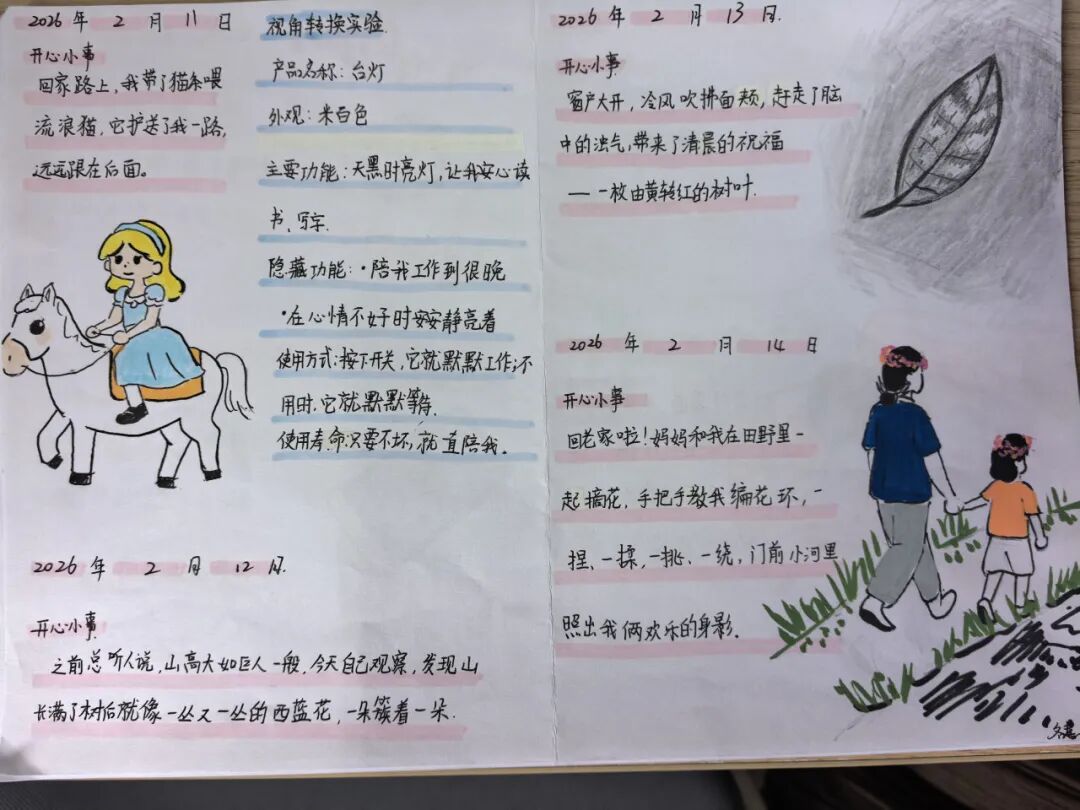 2026 年 2 月 11 日
开心小事
回家路上，我带了猫条喂
流浪猫，它护送了我一路，
远远跟在后面。
视角转换实验.
产品名称：台灯
外观：米白色
主要功能：天黑时亮灯，让我安心读
书、写字.
隐藏功能：·陪我工作到很晚
·在心情不好时安安静静亮着
使用方式：按下开关，它就默默工作；不
用时，它就默默等待.
使用寿命：只要不坏，就一直陪我。
2026 年 2 月 12 日.
开心小事.
之前总听人说，山高大如巨人一般，今天自己观察，发现山
长满了树后就像一丛又一丛的西蓝花，一朵簇着一朵.
2026 年 2 月 13 日.
开心小事.
窗户大开，冷风吹拂面颊，赶走了脑
中的浊气，带来了清晨的祝福
——一枚由黄转红的树叶.
2026 年 2 月 14 日
开心小事
回老家啦！妈妈和我在田野里一
起摘花，手把手教我编花环，一
捏、一揉、一挑、一绕，门前小河里
照出我俩欢乐的身影.